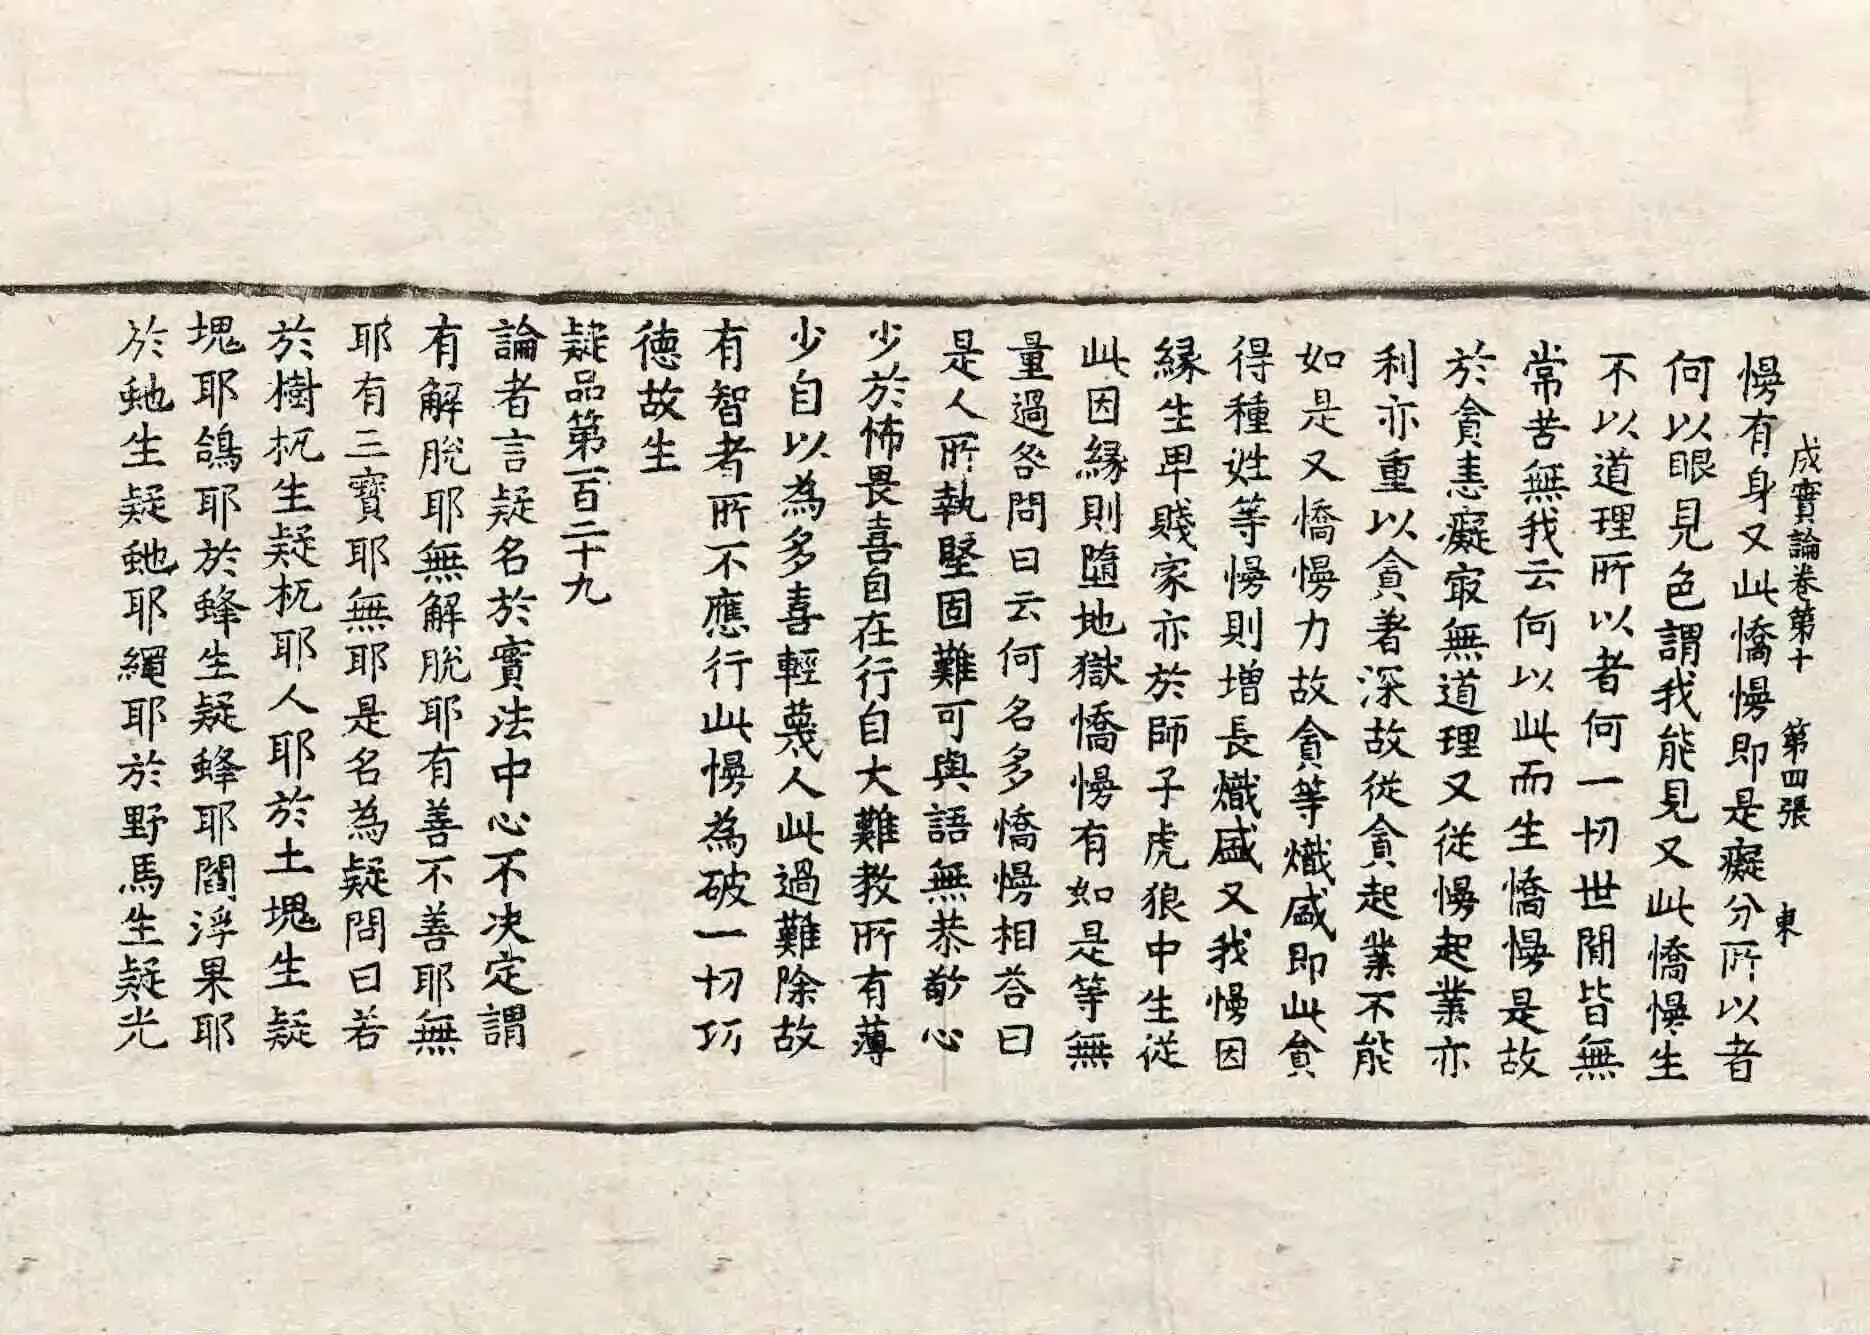 成實論卷第十　第四張　東
慢有身又此憍慢即是癡分所以者
何以眼見色謂我能見又此憍慢生
不以道理所以者何一切世間皆無
常苦無我云何以此而生憍慢是故
於貪恚癡冣無道理又從慢起業亦
利亦重以貪著深故從貪起業不能
如是又憍慢力故貪等熾盛即此貪
得種姓等慢則增長熾盛又我慢因
緣生卑賤家亦於師子虎狼中生從
此因緣則墮地獄憍慢有如是等無
量過咎問曰云何名多憍慢相荅曰
是人所執堅固難可與語無恭敬心
少於怖畏喜自在行自大難教所有薄
少自以為多喜輕蔑人此過難除故
有智者所不應行此慢為破一切功
德故生
疑品第一百二十九
論者言疑名於實法中心不決定謂
有解脫耶無解脫耶有善不善耶無
耶有三寶耶無耶是名為疑問曰若
於樹杌生疑杌耶人耶於土塊生疑
塊耶鴿耶於蜂生疑蜂耶閻浮果耶
於虵生疑虵耶繩耶於野馬生疑光